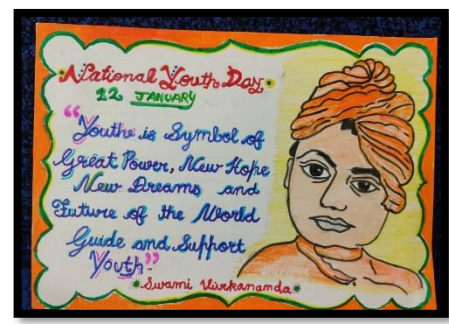 National Youth Day
12 JANUARY
"Youthe is Symbol of
Great Power, New Hope
New Dreams and
Future of the World
Guide and Support
Youth"
Swami Vivekananda